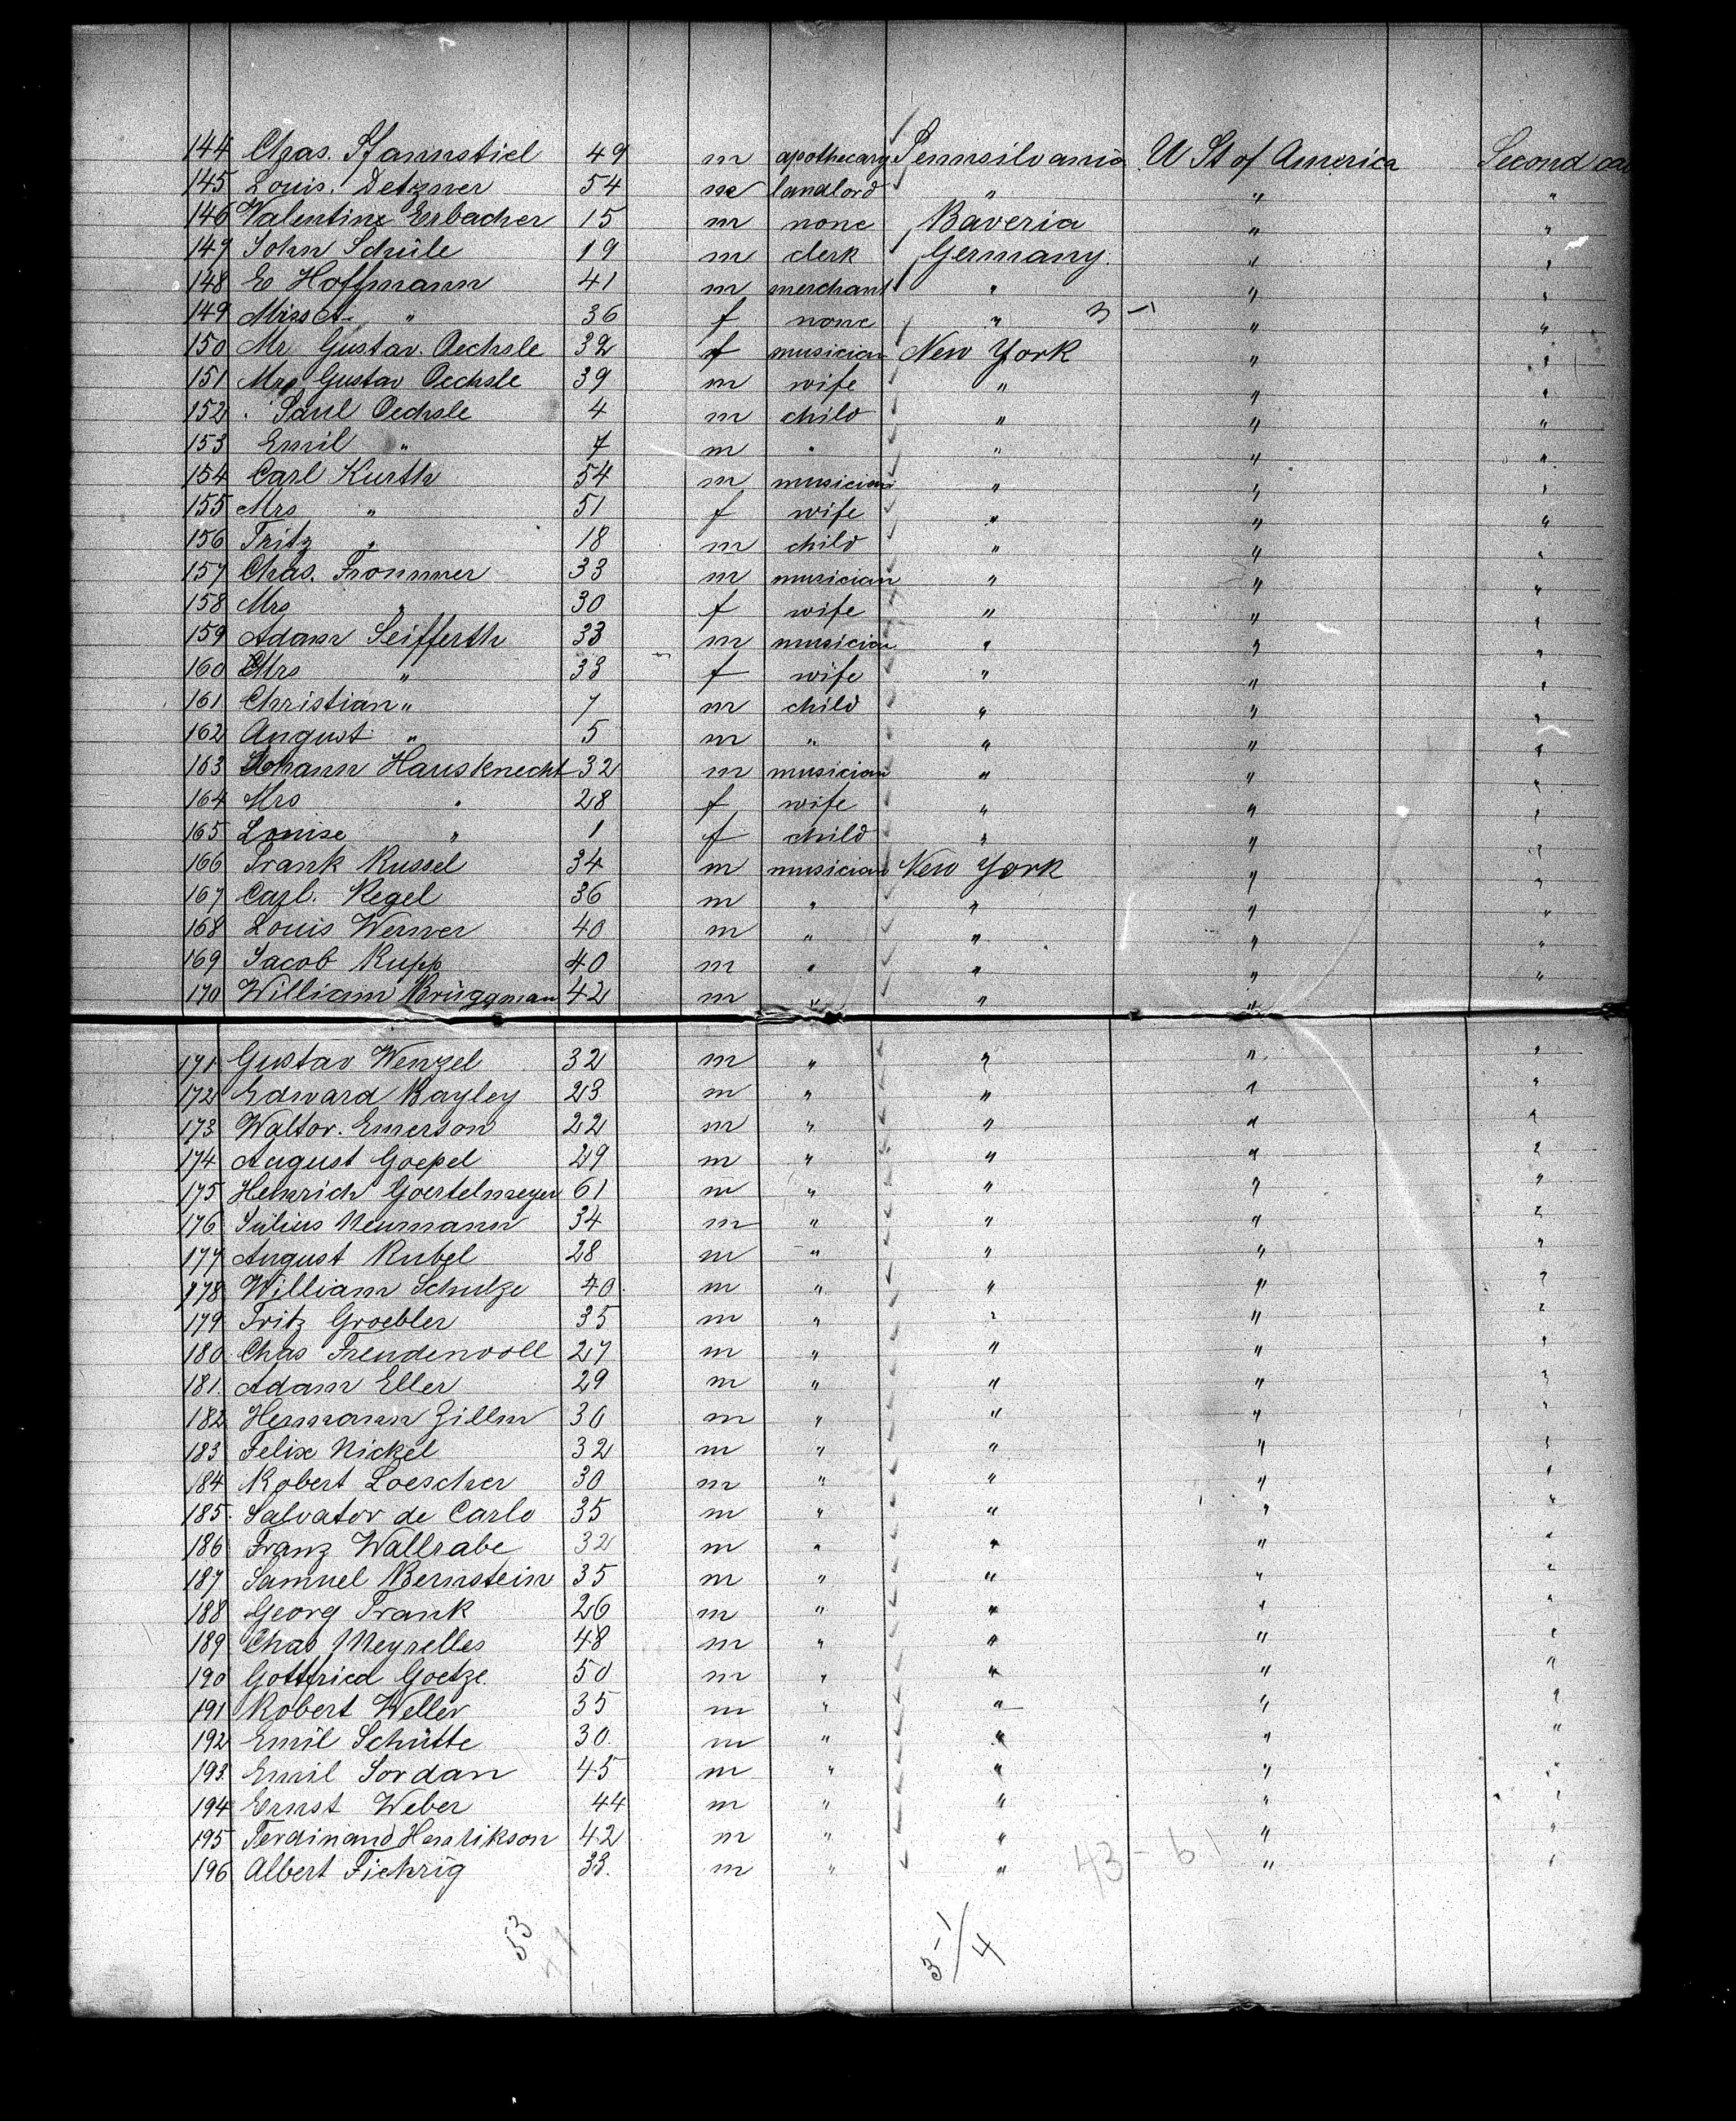 144 Chas. Pfannstiel 49 m apothecary Pennsilvania U St of America Second
145 Louis. Detzner 54 m landlord " " "
146 Valentine Erbacher 15 m none Baveria " "
149 John Schüle 19 m clerk Germany. " "
148 E Hoffmann 41 m merchant " " "
149 Miss A. " 36 f none " 3-1 " "
150 Mr Gustav. Oechsle 32 f musician New York " "
151 Mrs Gustav Oechsle 39 m wife " " "
152 Paul Oechsle 4 m child " " "
153 Emil " 7 m " " " "
154 Carl Kurth 54 m musician " " "
155 Mrs " 51 f wife " " "
156 Fritz " 18 m child " " "
157 Chas. Frommer 33 m musician " " "
158 Mrs " 30 f wife " " "
159 Adam Seifferth 33 m musician " " "
160 Mrs " 33 f wife " " "
161 Christian " 7 m child " " "
162 August " 5 m " " " "
163 Johann Hausknecht 32 m musician " " "
164 Mrs " 28 f wife " " "
165 Louise " 1 f child " " "
166 Frank Russel 34 m musician New York " "
167 Carl. Regel 36 m " " " "
168 Louis Werner 40 m " " " "
169 Jacob Rupp 40 m " " " "
170 William Brüggman 42 m " " "
171 Gustav Wenzel 32 m " " " "
172 Edward Bayley 23 m " " " "
173 Waltor. Emerson 22 m " " " "
174 August Goepel 29 m " " " "
175 Heinrich Goertelmeyer 61 m " " " "
176 Julius Neumann 34 m " " " "
177 August Rubel 28 m " " " "
178 William Schulze 40 m " " " "
179 Fritz Groebler 35 m " " " "
180 Chas Freudenvoll 27 m " " " "
181 Adam Eller 29 m " " " "
182 Hermann Zillm 30 m " " " "
183 Felix Nickel 32 m " " " "
184 Robert Loescher 30 m " " " "
185. Salvator de Carlo 35 m " " " "
186 Franz Wallrabe 32 m " " " "
187 Samuel Bernstein 35 m " " " "
188 Georg Frank 26 m " " " "
189 Chas Meyrelles 48 m " " " "
190 Gottfried Goetze. 50 m " " " "
191 Robert Weller 35 m " " " "
192 Emil Schütte 30. m " " " "
193. Emil Jordan 45 m " " " "
194 Ernst Weber 44 m " " " "
195 Ferdinand Henrikson 42 m " " " "
196 Albert Fiehrig 33. m " " 43-61 " "
53 3-1/4